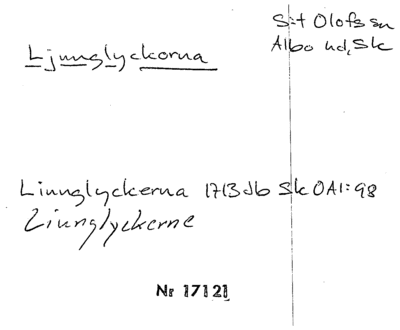 Ljunglyckorna
S:t Olofs sn
Albo hd, Sk
Liunglyckerna 1713 Jb Sk OA1:98
Liunglyckerne
Nr 17121